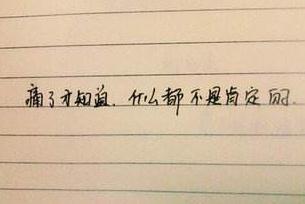 痛了才知道,什么都不是肯定的.